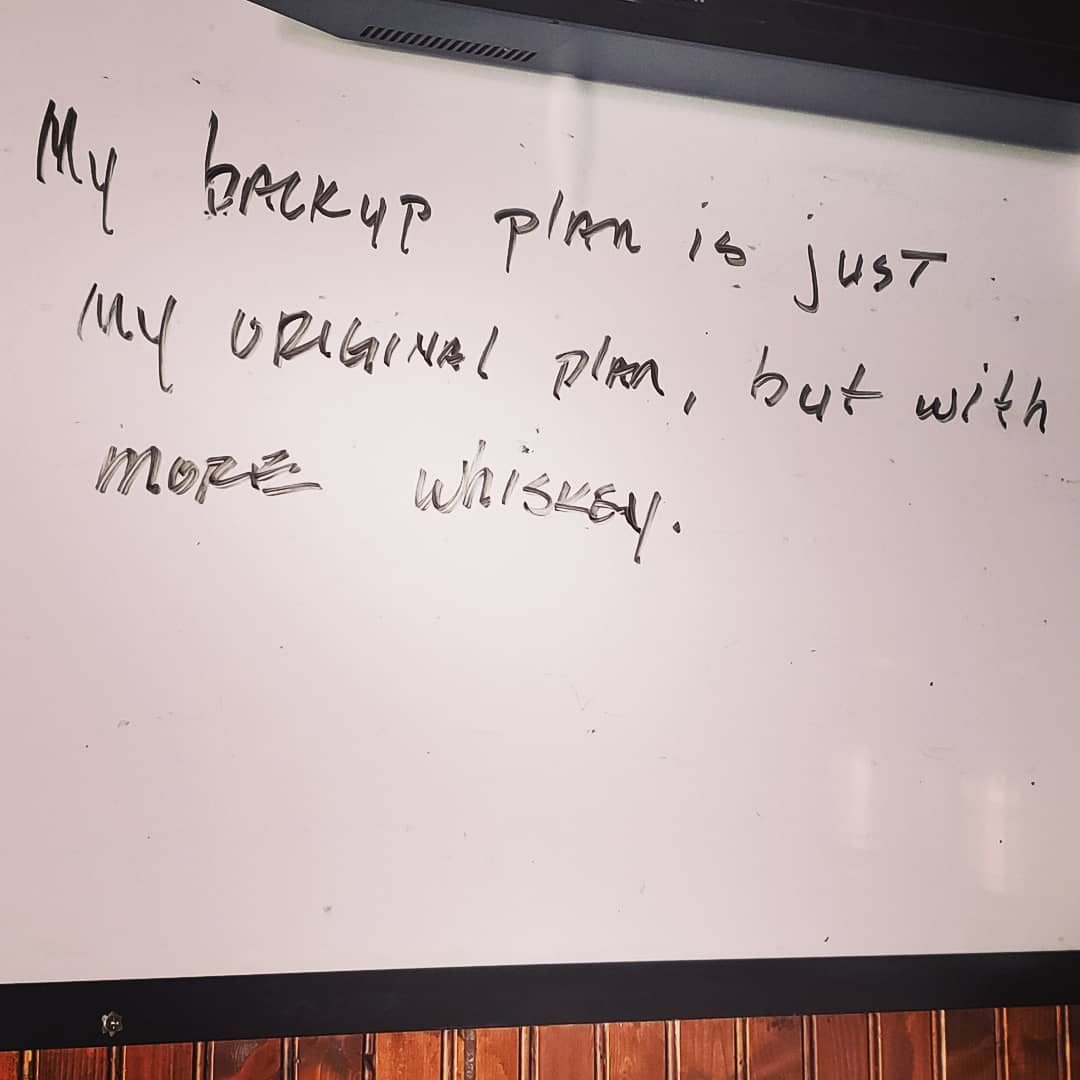 My backup plan is just
My original plan, but with
more whiskey.